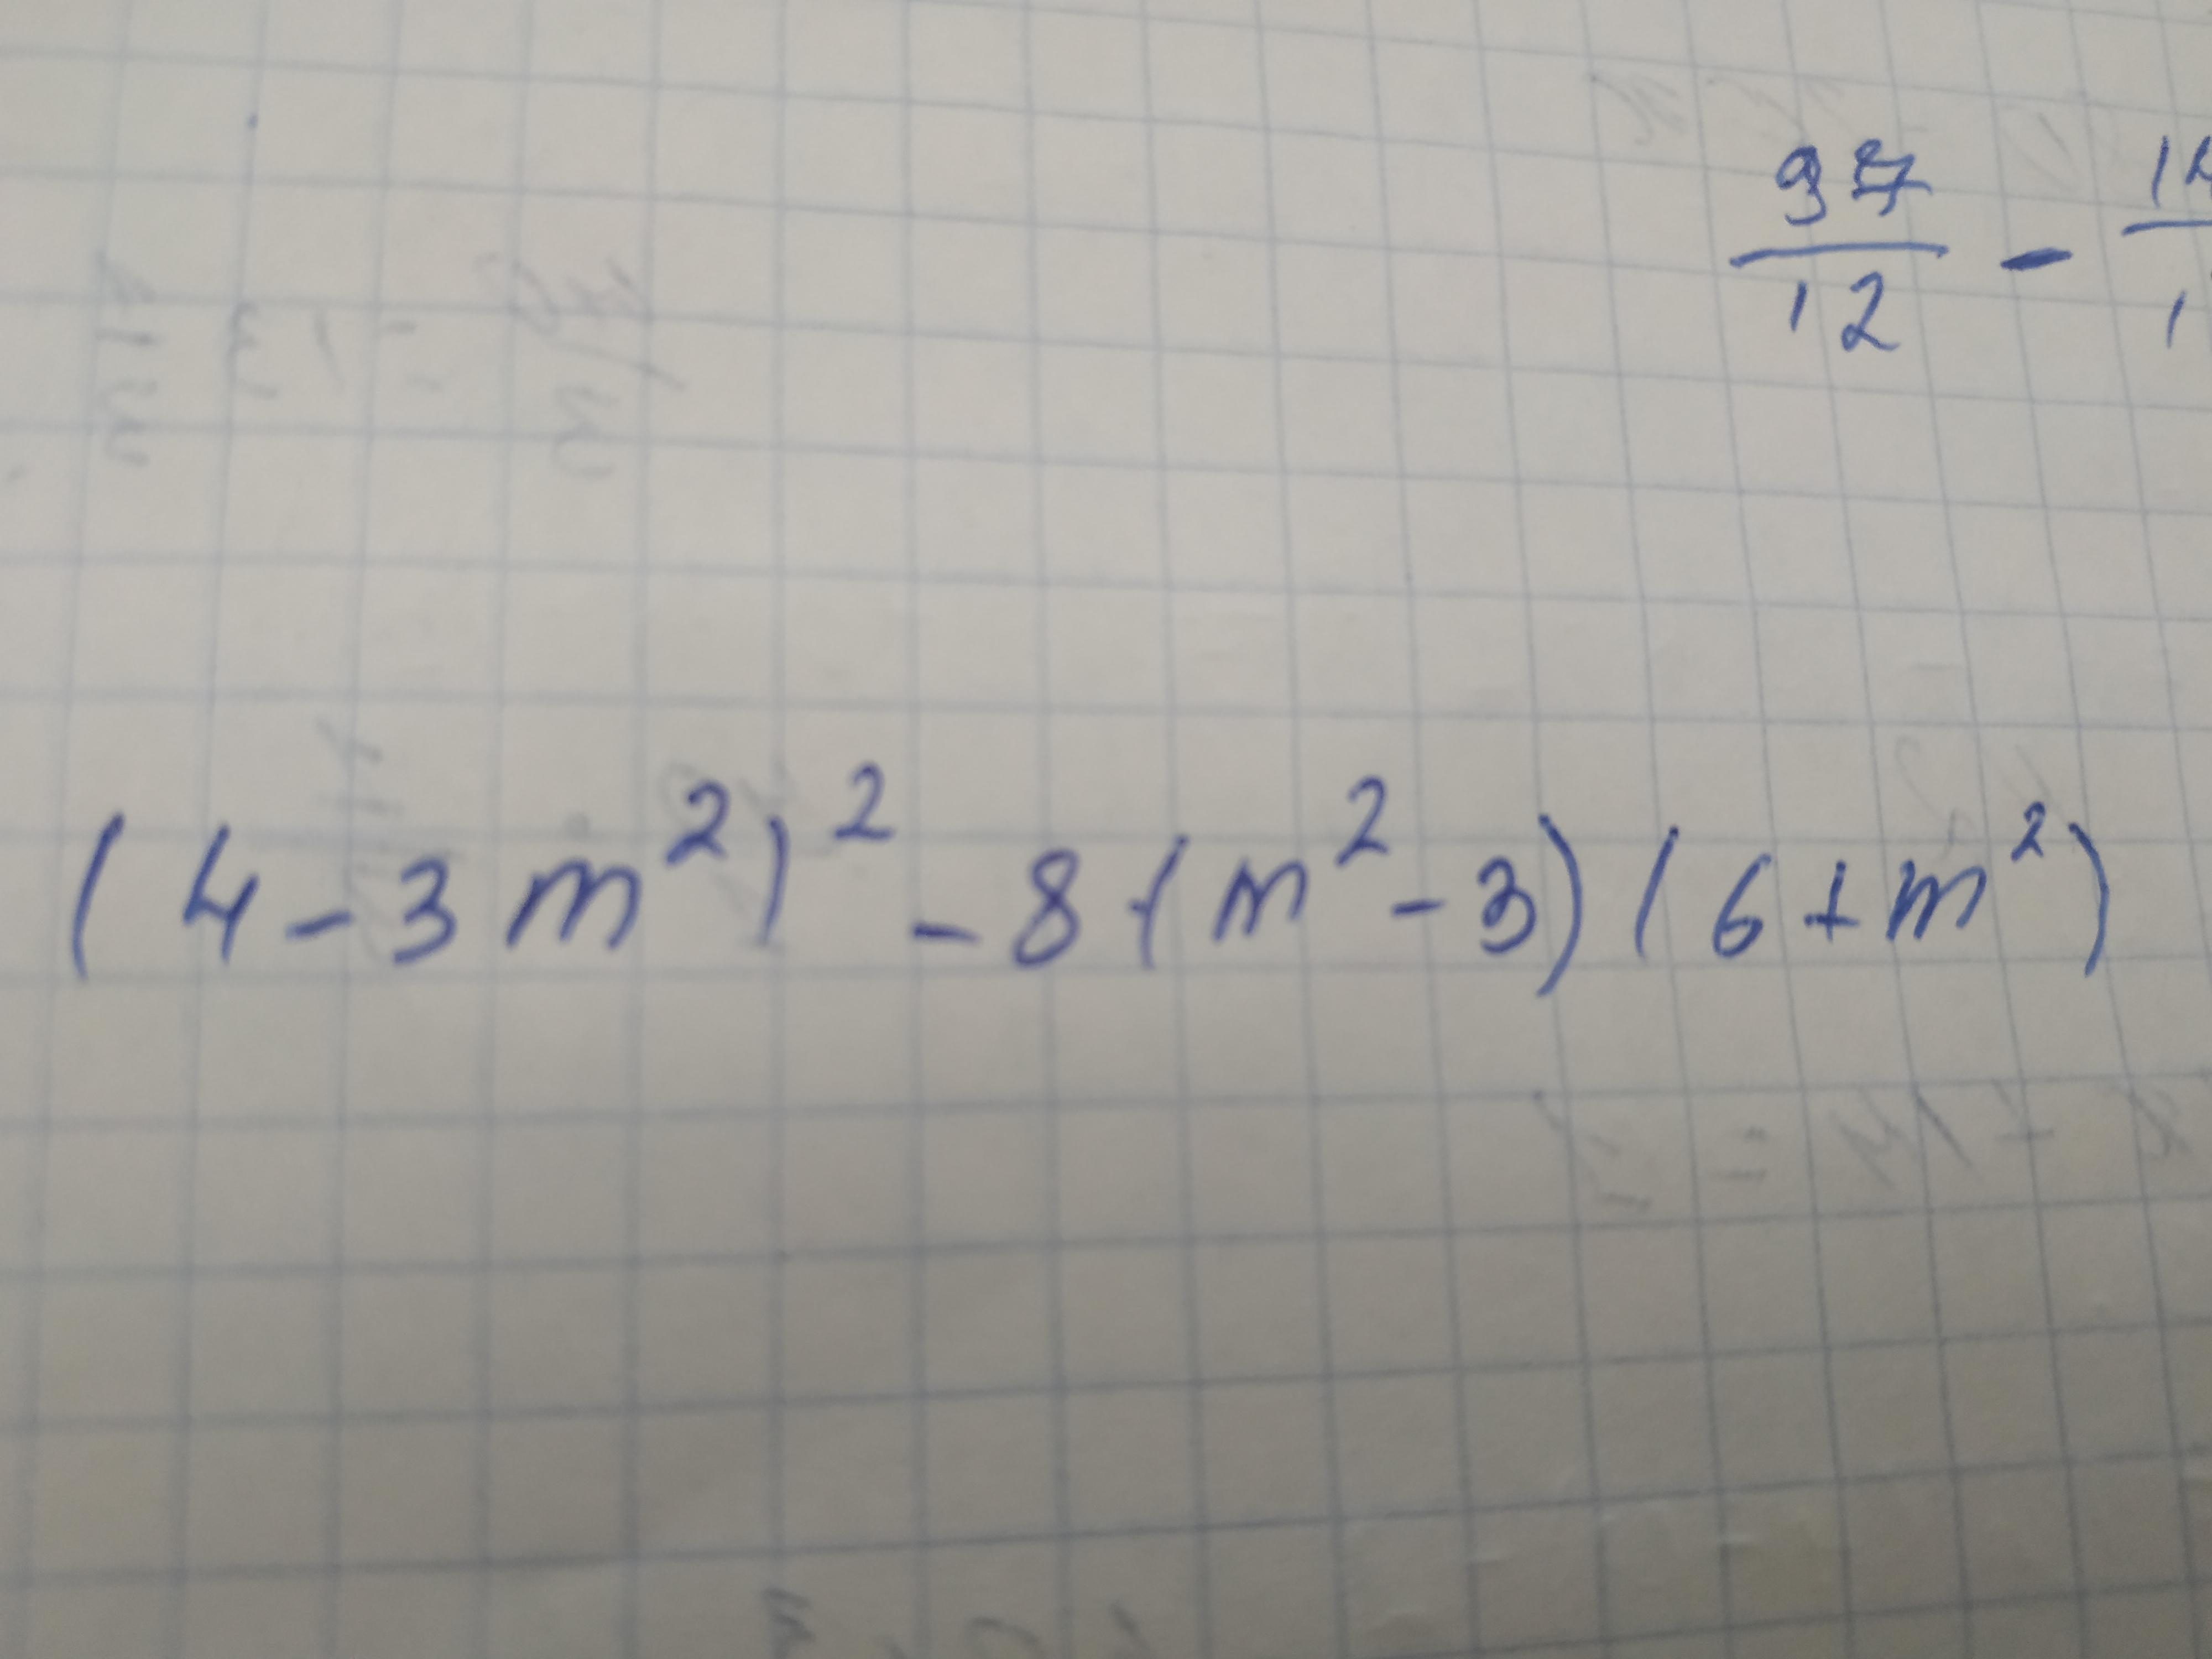 97/12 - 
(4-3m²)² - 8(m²-3)(6+m²)